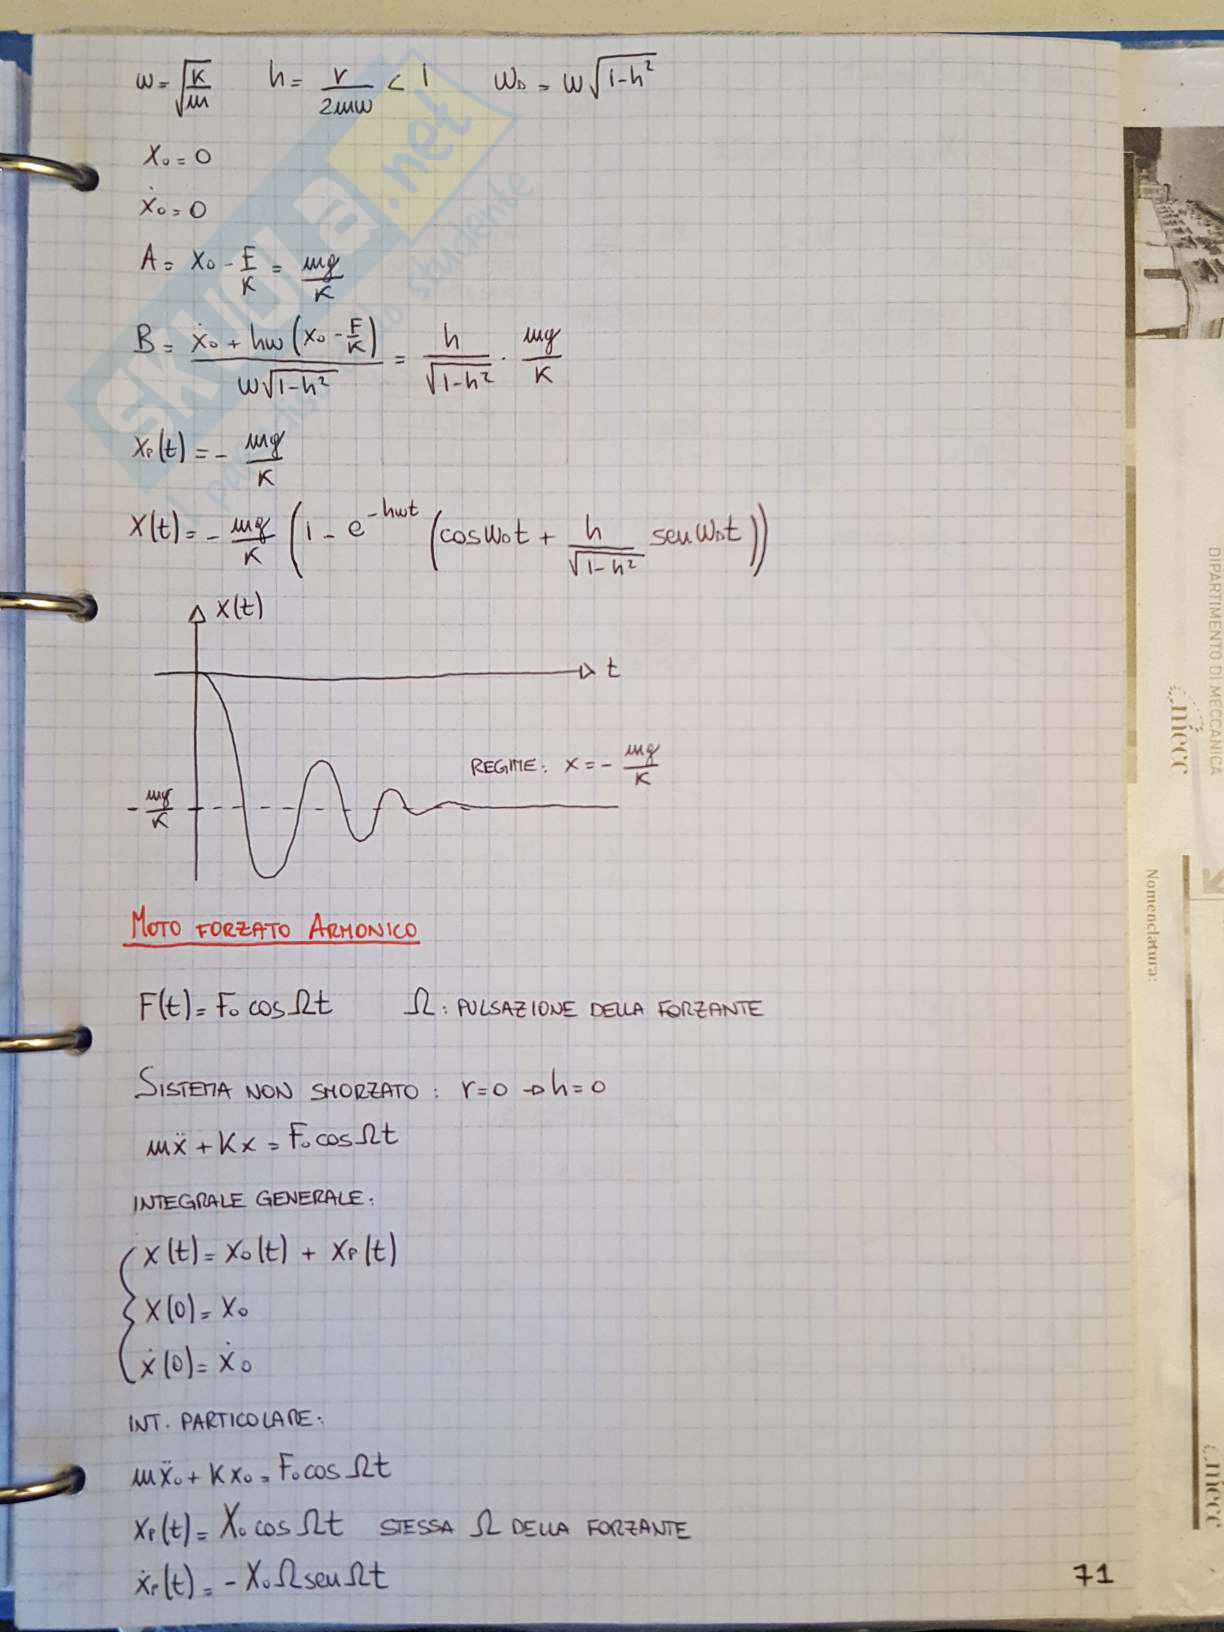 ω = √(k/m)   h = r/(2mω) < 1   ω_D = ω√(1-h²)
x₀ = 0
ẋ₀ = 0
A = x₀ - F/k = mg/k
B = (ẋ₀ + hω(x₀ - F/k))/(ω√(1-h²)) = h/√(1-h²) · mg/k
x_P(t) = - mg/k
x(t) = - mg/k (1 - e^(-hωt) (cosω_Dt + h/√(1-h²) senω_Dt))
x(t)
t
REGIME: x = - mg/k
- mg/k
MOTO FORZATO ARMONICO
F(t) = F₀ cosΩt   Ω: PULSAZIONE DELLA FORZANTE
SISTEMA NON SMORZATO: r=0 → h=0
mẍ + kx = F₀ cosΩt
INTEGRALE GENERALE:
x(t) = x₀(t) + x_P(t)
x(0) = x₀
ẋ(0) = ẋ₀
INT. PARTICOLARE:
mẍ₀ + kx₀ = F₀ cosΩt
x_P(t) = X₀ cosΩt   STESSA Ω DELLA FORZANTE
ẋ_P(t) = - X₀ΩsenΩt
71
SKUOLA.net
DIPARTIMENTO DI MECCANICA
mecc
Nomenclatura:
mecc